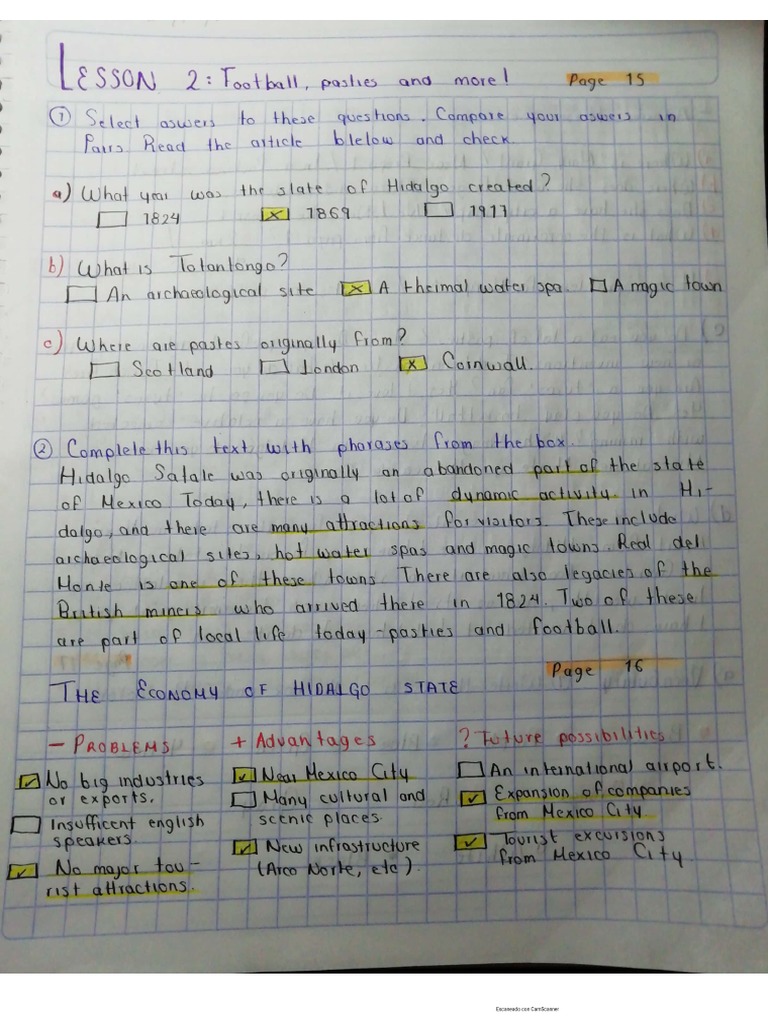 LESSON 2: Football, pasties and more! Page 15
① Select aswers to these questions. Compare your aswers in
Pairs. Read the article blelow and check
a) What year was the state of Hidalgo created?
1824 x 1869 1917
b) What is Tolantongo?
An archaeological site x A thermal water spa. A magic town
c) Where are pastes originally from?
Scotland London x Cornwall.
② Complete this text with phorases from the box.
Hidalgo Satate was originally an abandoned part of the state
of Mexico Today, there is a lot of dynamic activity. in Hi-
dalgo, and there are many attractions for visitors. These include
archaeological sites, hot water spas and magic towns. Real del
Monte is one of these towns There are also legacies of the
British miners who arrived there in 1824. Two of these
are part of local life today-pasties and football.
Page 16
THE ECONOMY OF HIDALGO STATE
- PROBLEMS + Advantages ? Future possibilities
✓ No big industries ✓ Near Mexico City An international airport.
or exports. Many cultural and ✓ Expansion of companies
Insufficent english scenic places. from Mexico City.
speakers. ✓ New infrastructure ✓ Tourist excursions
✓ No major tou- (Arco Norte, etc). from Mexico City.
rist attractions.
Escaneado con CamScanner